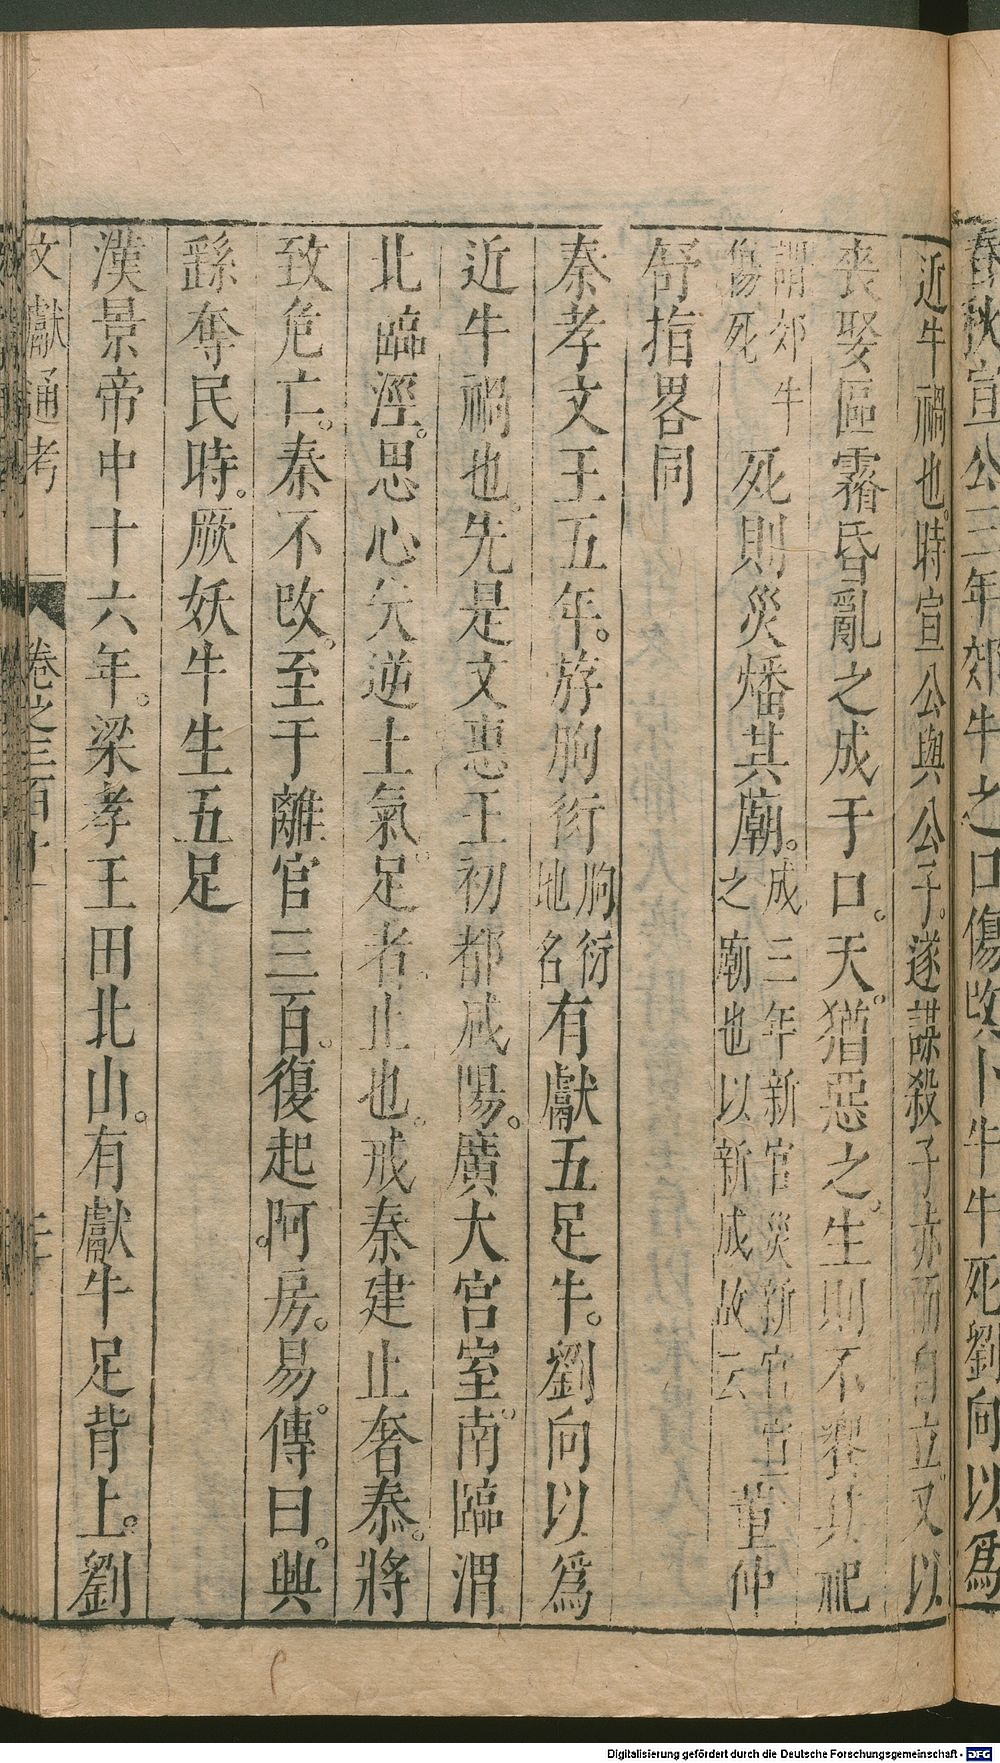 春秋宣公三年郊牛之口傷改卜牛牛死劉向以爲
近牛禍也時宣公與公子遂謀殺子赤而自立又以
喪娶區霿昏亂之成于口天猶惡之生則不饗其祀
謂郊牛
傷死
死則災燔其廟
成三年新宮災新宮宣
之廟也以新成故云
董仲
舒指畧同
秦孝文王五年斿朐衍
朐衍
地名
有獻五足牛劉向以爲
近牛禍也先是文惠王初都咸陽廣大宮室南臨渭
北臨涇思心失逆土氣足者止也戒秦建止奢泰將
致危亡秦不改至于離宮三百復起阿房易傳曰興
繇奪民時厥妖牛生五足
漢景帝中十六年梁孝王田北山有獻牛足背上劉
文獻通考
卷之三百十一
Digitalisierung gefördert durch die Deutsche Forschungsgemeinschaft - DFG